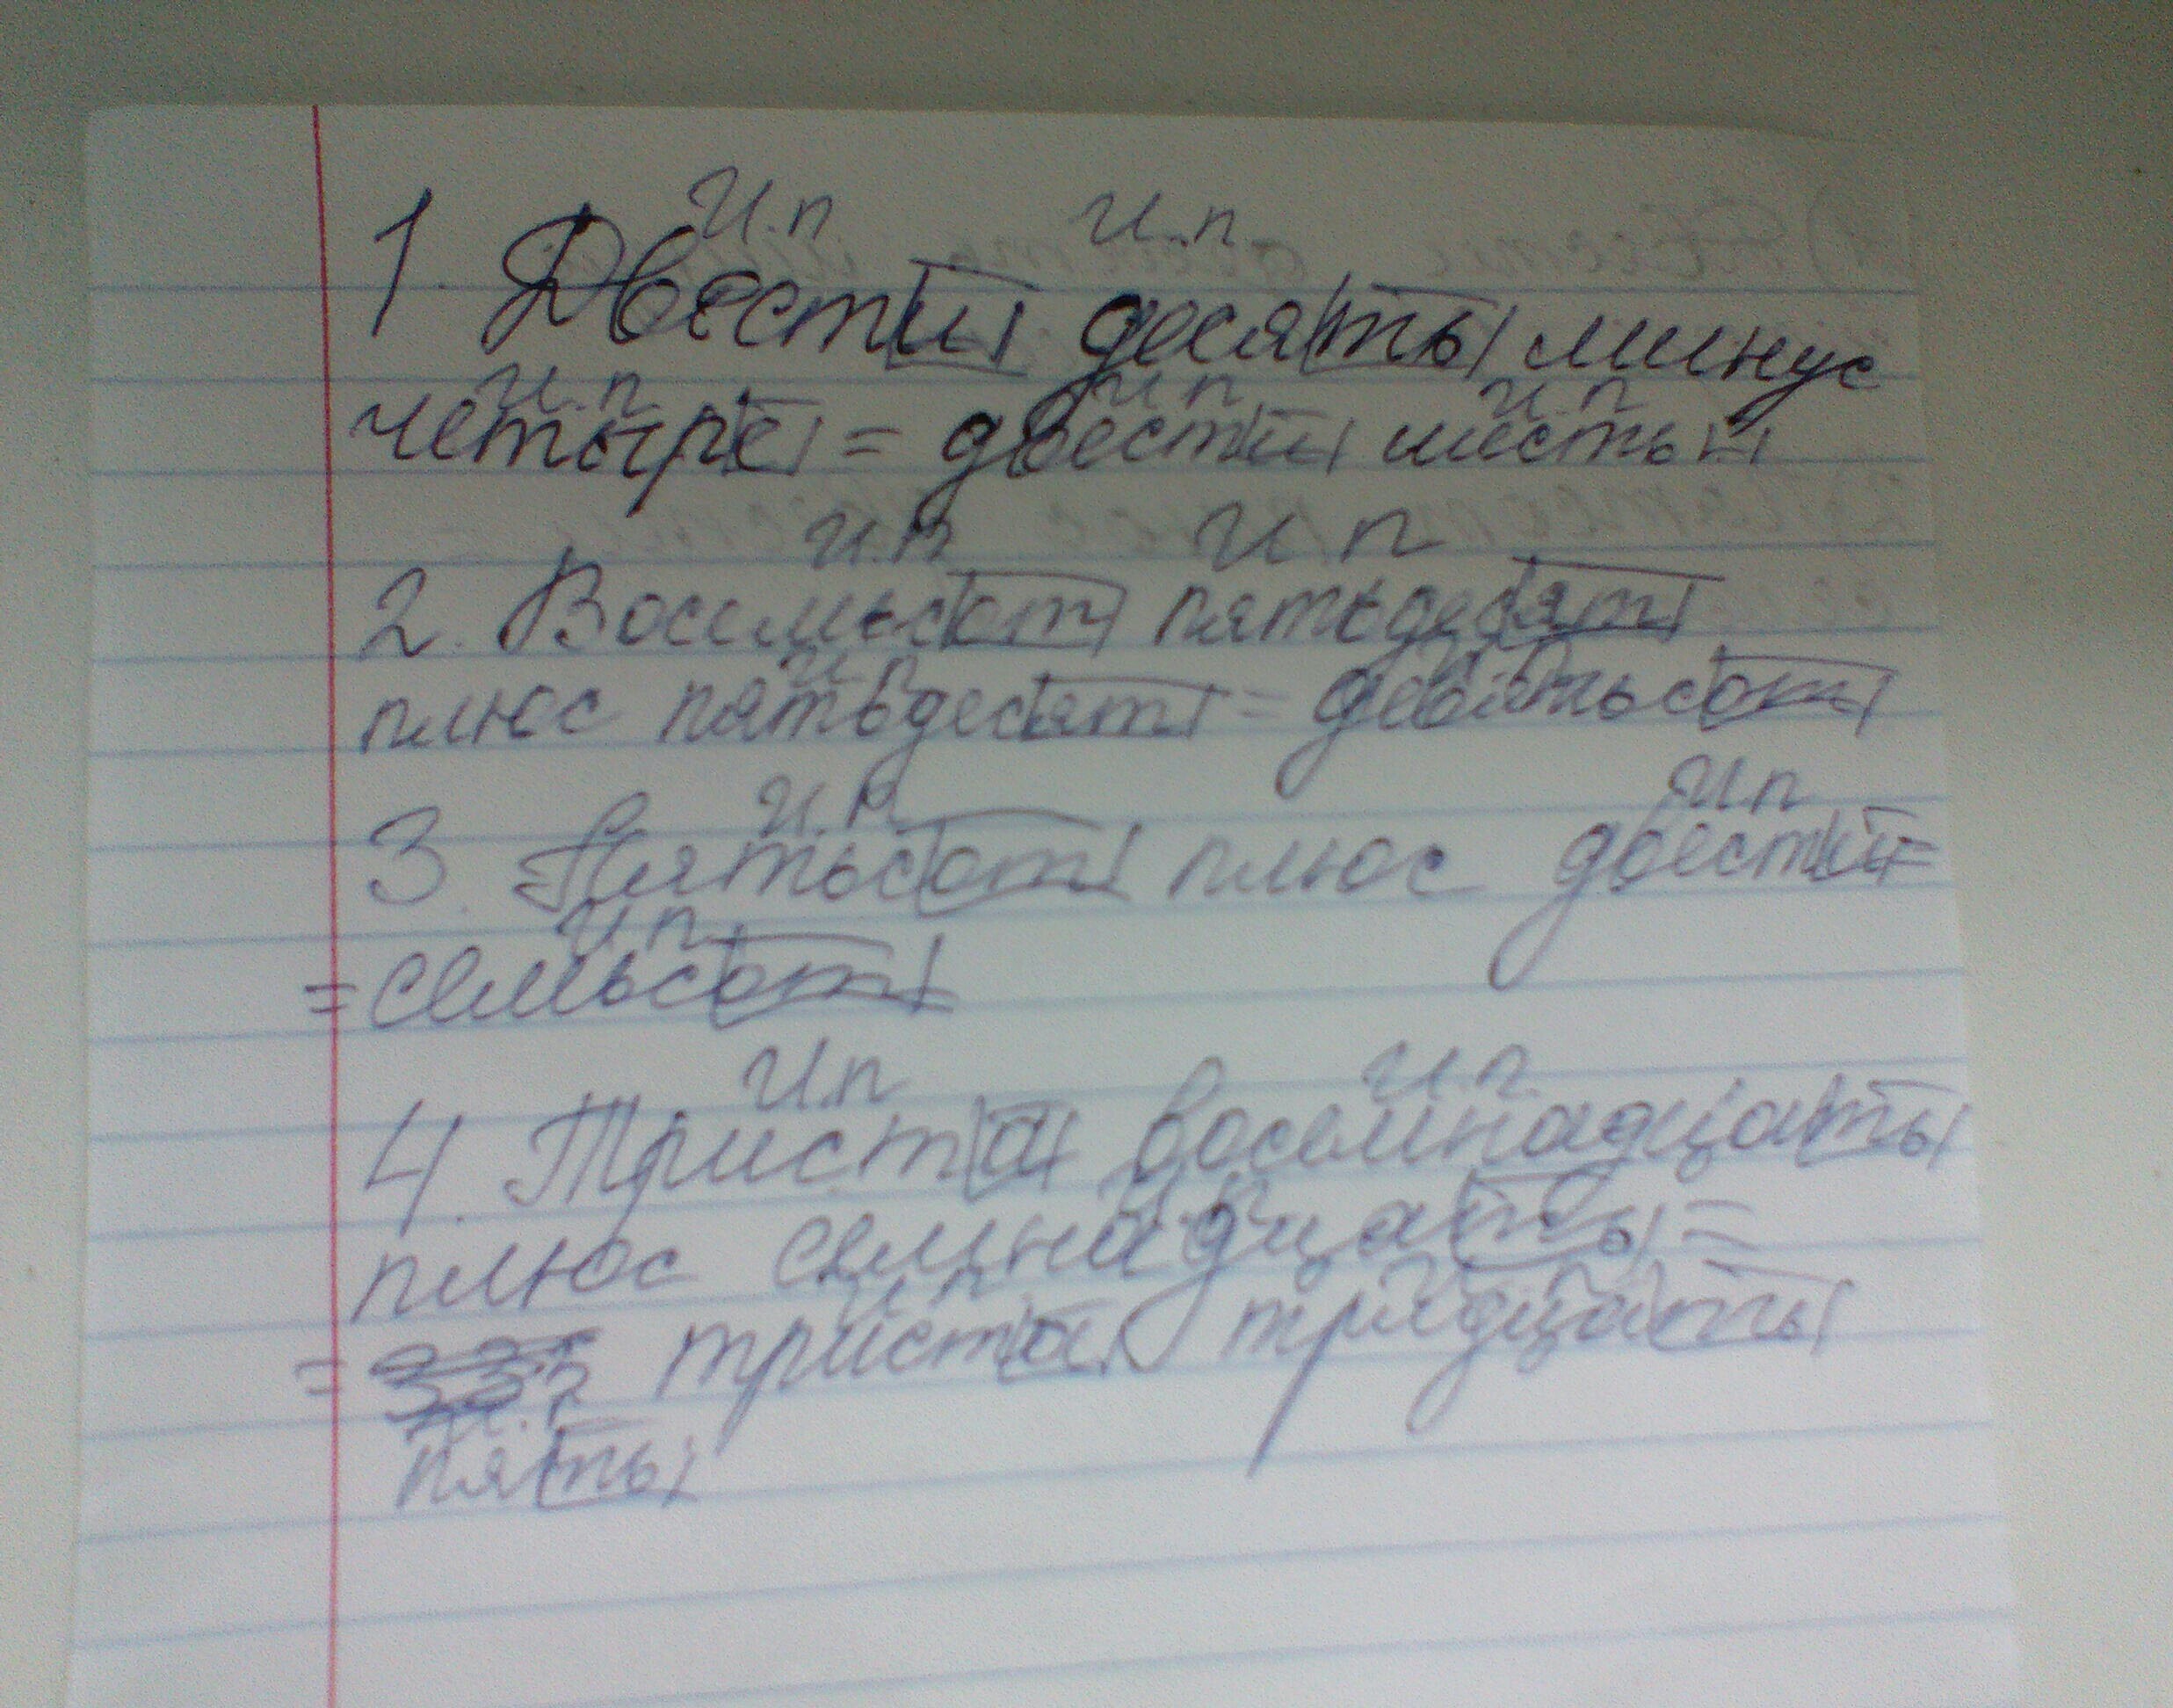 И.п И.п
1. Двести десять минус
И.п И.п И.п
четыре = двести шесть
И.п И п
2. Восемьсот пятьдесят
И п И п
плюс пятьдесят = девятьсот
И.п И.п
3. Пятьсот плюс двести =
И п
= семьсот
И.п И.п
4. Триста восемнадцать
И.п
плюс семнадцать =
И п И п
= 335 триста тридцать
И.п
пять